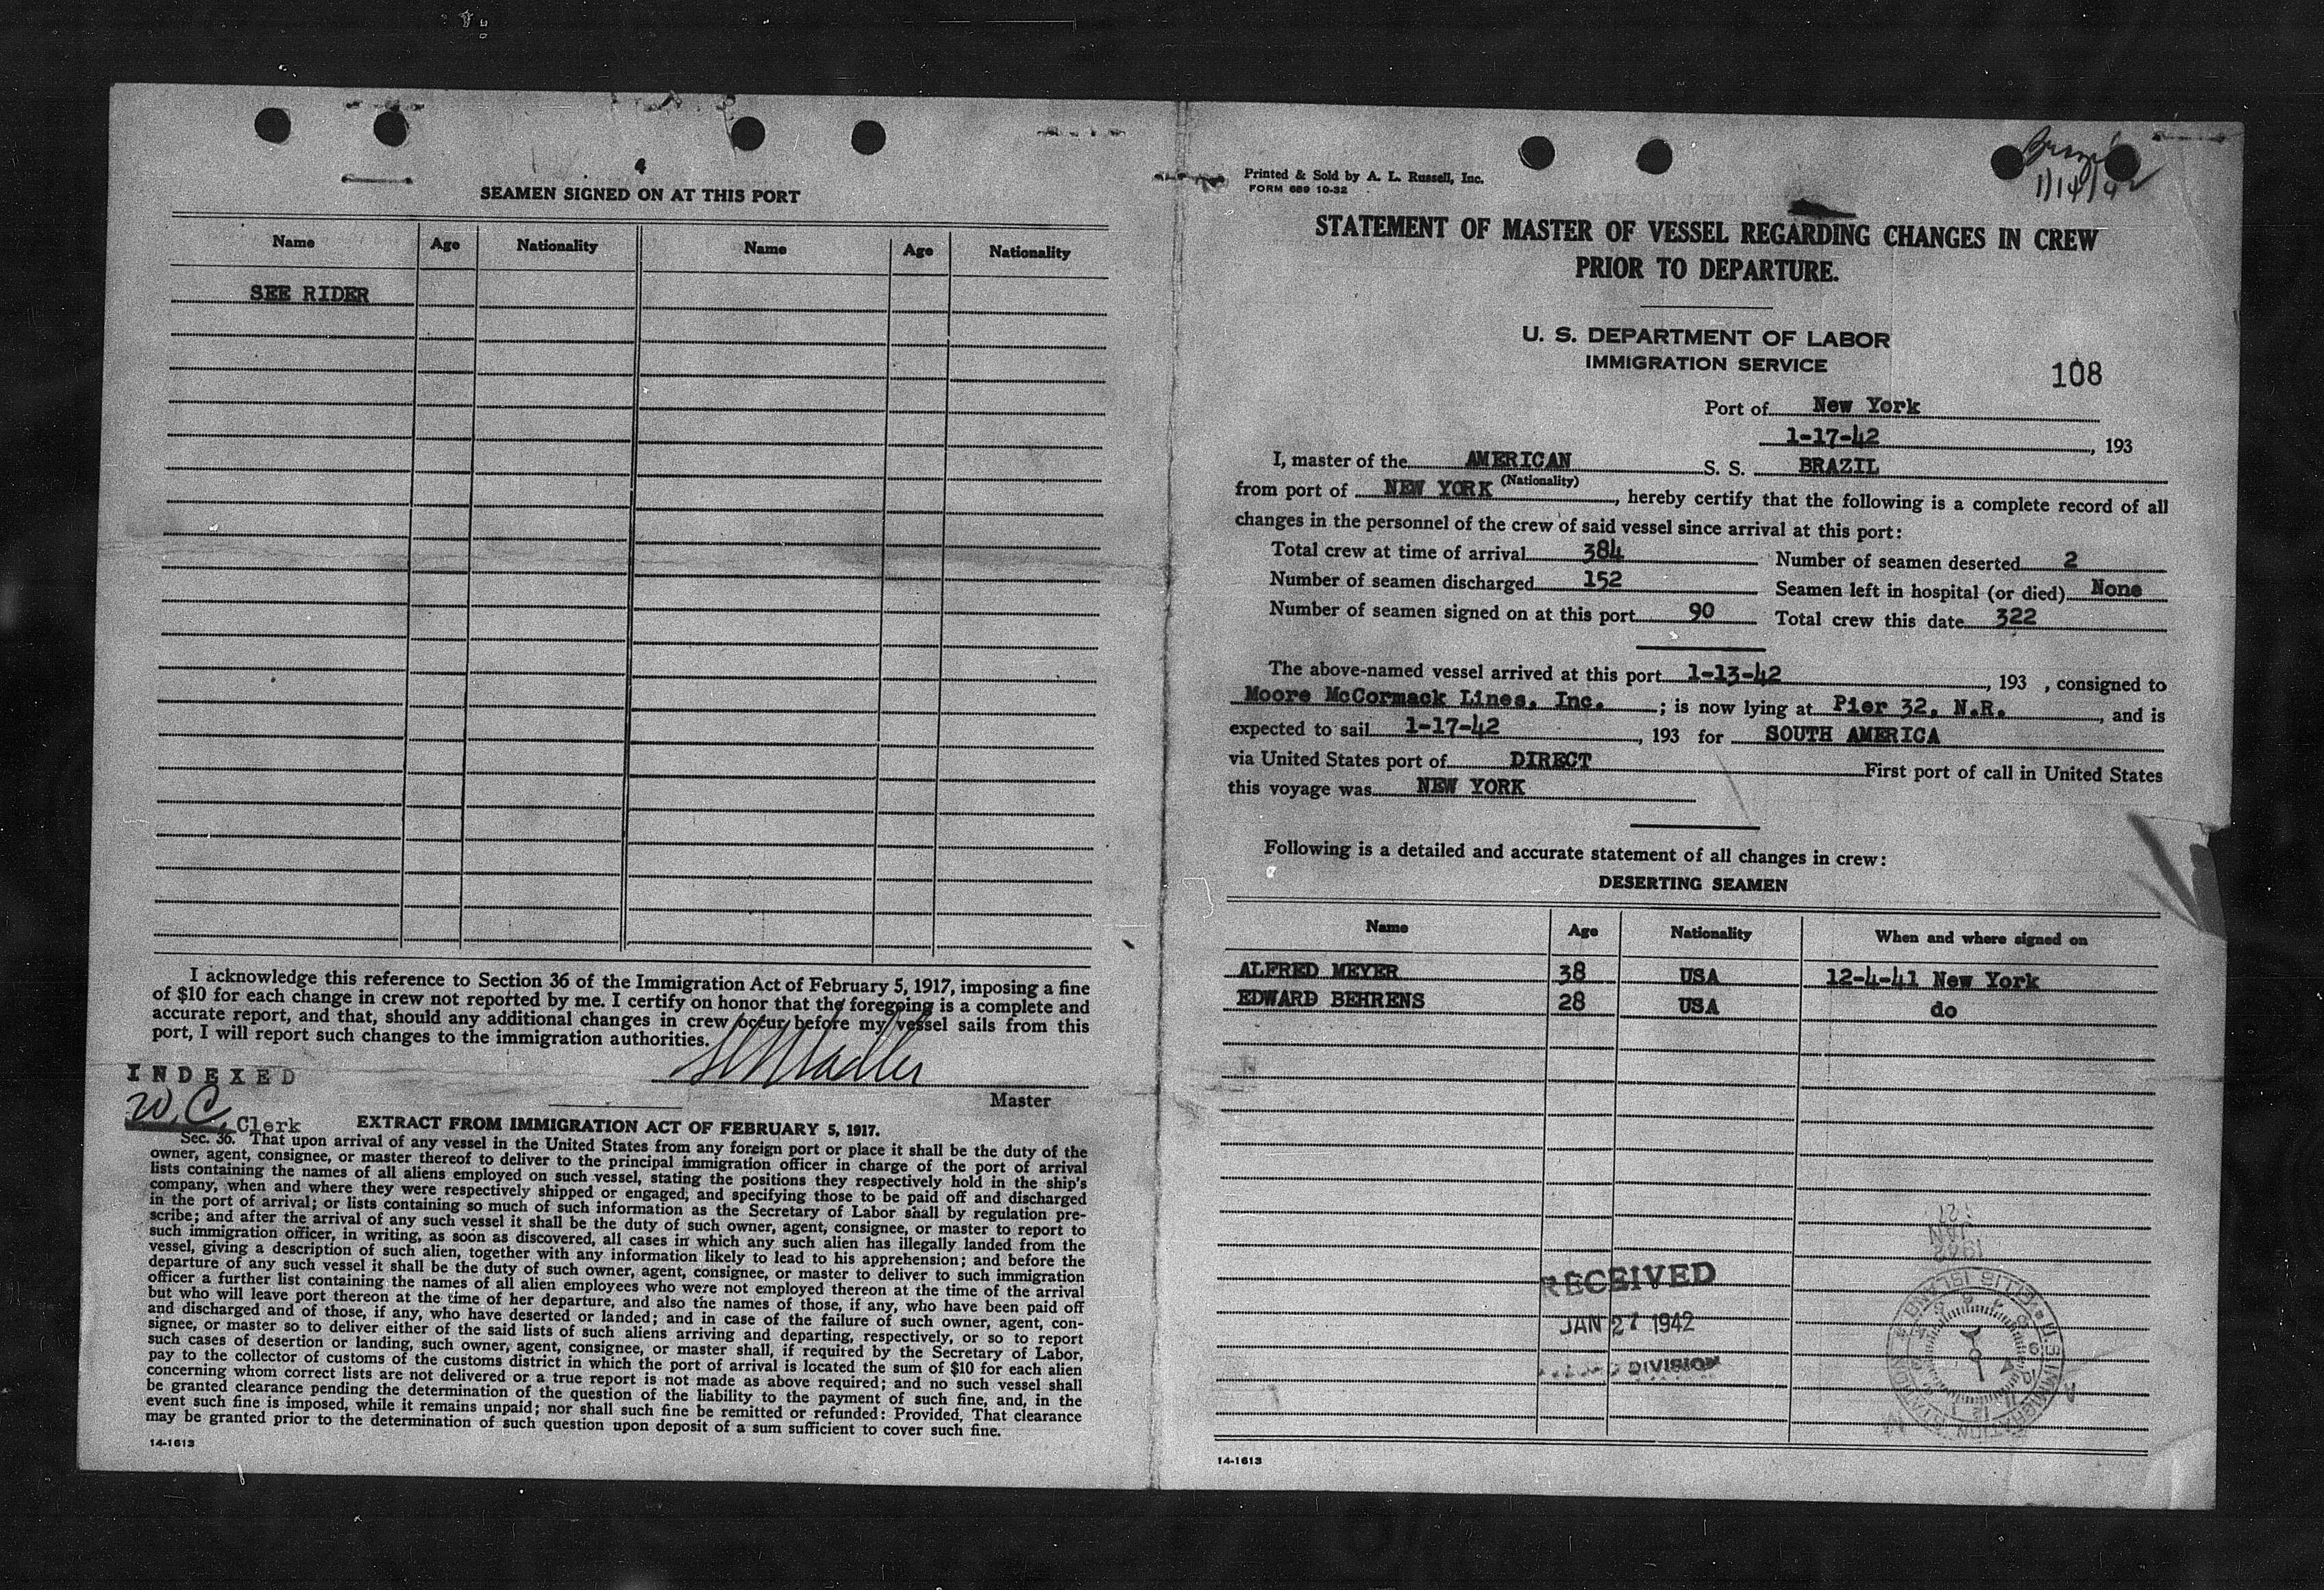 4
SEAMEN SIGNED ON AT THIS PORT
Name Age Nationality Name Age Nationality
SEE RIDER
I acknowledge this reference to Section 36 of the Immigration Act of February 5, 1917, imposing a fine
of $10 for each change in crew not reported by me. I certify on honor that the foregoing is a complete and
accurate report, and that, should any additional changes in crew occur before my vessel sails from this
port, I will report such changes to the immigration authorities.
Master
INDEXED
W.C. Clerk
EXTRACT FROM IMMIGRATION ACT OF FEBRUARY 5, 1917.
Sec. 36. That upon arrival of any vessel in the United States from any foreign port or place it shall be the duty of the
owner, agent, consignee, or master thereof to deliver to the principal immigration officer in charge of the port of arrival
lists containing the names of all aliens employed on such vessel, stating the positions they respectively hold in the ship's
company, when and where they were respectively shipped or engaged, and specifying those to be paid off and discharged
in the port of arrival; or lists containing so much of such information as the Secretary of Labor shall by regulation pre-
scribe; and after the arrival of any such vessel it shall be the duty of such owner, agent, consignee, or master to report to
such immigration officer, in writing, as soon as discovered, all cases in which any such alien has illegally landed from the
vessel, giving a description of such alien, together with any information likely to lead to his apprehension; and before the
departure of any such vessel it shall be the duty of such owner, agent, consignee, or master to deliver to such immigration
officer a further list containing the names of all alien employees who were not employed thereon at the time of the arrival
but who will leave port thereon at the time of her departure, and also the names of those, if any, who have been paid off
and discharged and of those, if any, who have deserted or landed; and in case of the failure of such owner, agent, con-
signee, or master so to deliver either of the said lists of such aliens arriving and departing, respectively, or so to report
such cases of desertion or landing, such owner, agent, consignee, or master shall, if required by the Secretary of Labor,
pay to the collector of customs of the customs district in which the port of arrival is located the sum of $10 for each alien
concerning whom correct lists are not delivered or a true report is not made as above required; and no such vessel shall
be granted clearance pending the determination of the question of the liability to the payment of such fine, and, in the
event such fine is imposed, while it remains unpaid; nor shall such fine be remitted or refunded: Provided, That clearance
may be granted prior to the determination of such question upon deposit of a sum sufficient to cover such fine.
14-1613
Brazil
1/14/42
Printed & Sold by A. L. Russell, Inc.
FORM 689 10-32
STATEMENT OF MASTER OF VESSEL REGARDING CHANGES IN CREW
PRIOR TO DEPARTURE.
U. S. DEPARTMENT OF LABOR
IMMIGRATION SERVICE
108
Port of New York
1-17-42, 193
I, master of the AMERICAN S. S. BRAZIL
(Nationality)
from port of NEW YORK, hereby certify that the following is a complete record of all
changes in the personnel of the crew of said vessel since arrival at this port:
Total crew at time of arrival 384 Number of seamen deserted 2
Number of seamen discharged 152 Seamen left in hospital (or died) None
Number of seamen signed on at this port 90 Total crew this date 322
The above-named vessel arrived at this port 1-13-42, 193 , consigned to
Moore McCormack Lines, Inc. ; is now lying at Pier 32, N.R., and is
expected to sail 1-17-42, 193 for SOUTH AMERICA
via United States port of DIRECT First port of call in United States
this voyage was NEW YORK
Following is a detailed and accurate statement of all changes in crew:
DESERTING SEAMEN
Name Age Nationality When and where signed on
ALFRED MEYER 38 USA 12-4-41 New York
EDWARD BEHRENS 28 USA do
1942
JAN
27
RECEIVED
JAN 27 1942
DIVISION
14-1613